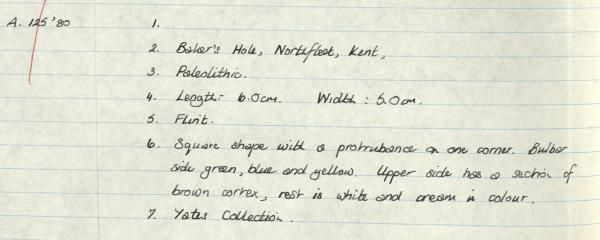 A. 125'80 1.
2. Baker's Hole, Northfleet, Kent,
3. Paleolithic.
4. Length:- 6.0cm. Width: 5.0cm.
5. Flint.
6. Square shape with a protrubance on one corner. Bulbar
side green, blue and yellow. Upper side has a section of
brown cortex, rest is white and cream in colour.
7. Yates Collection.